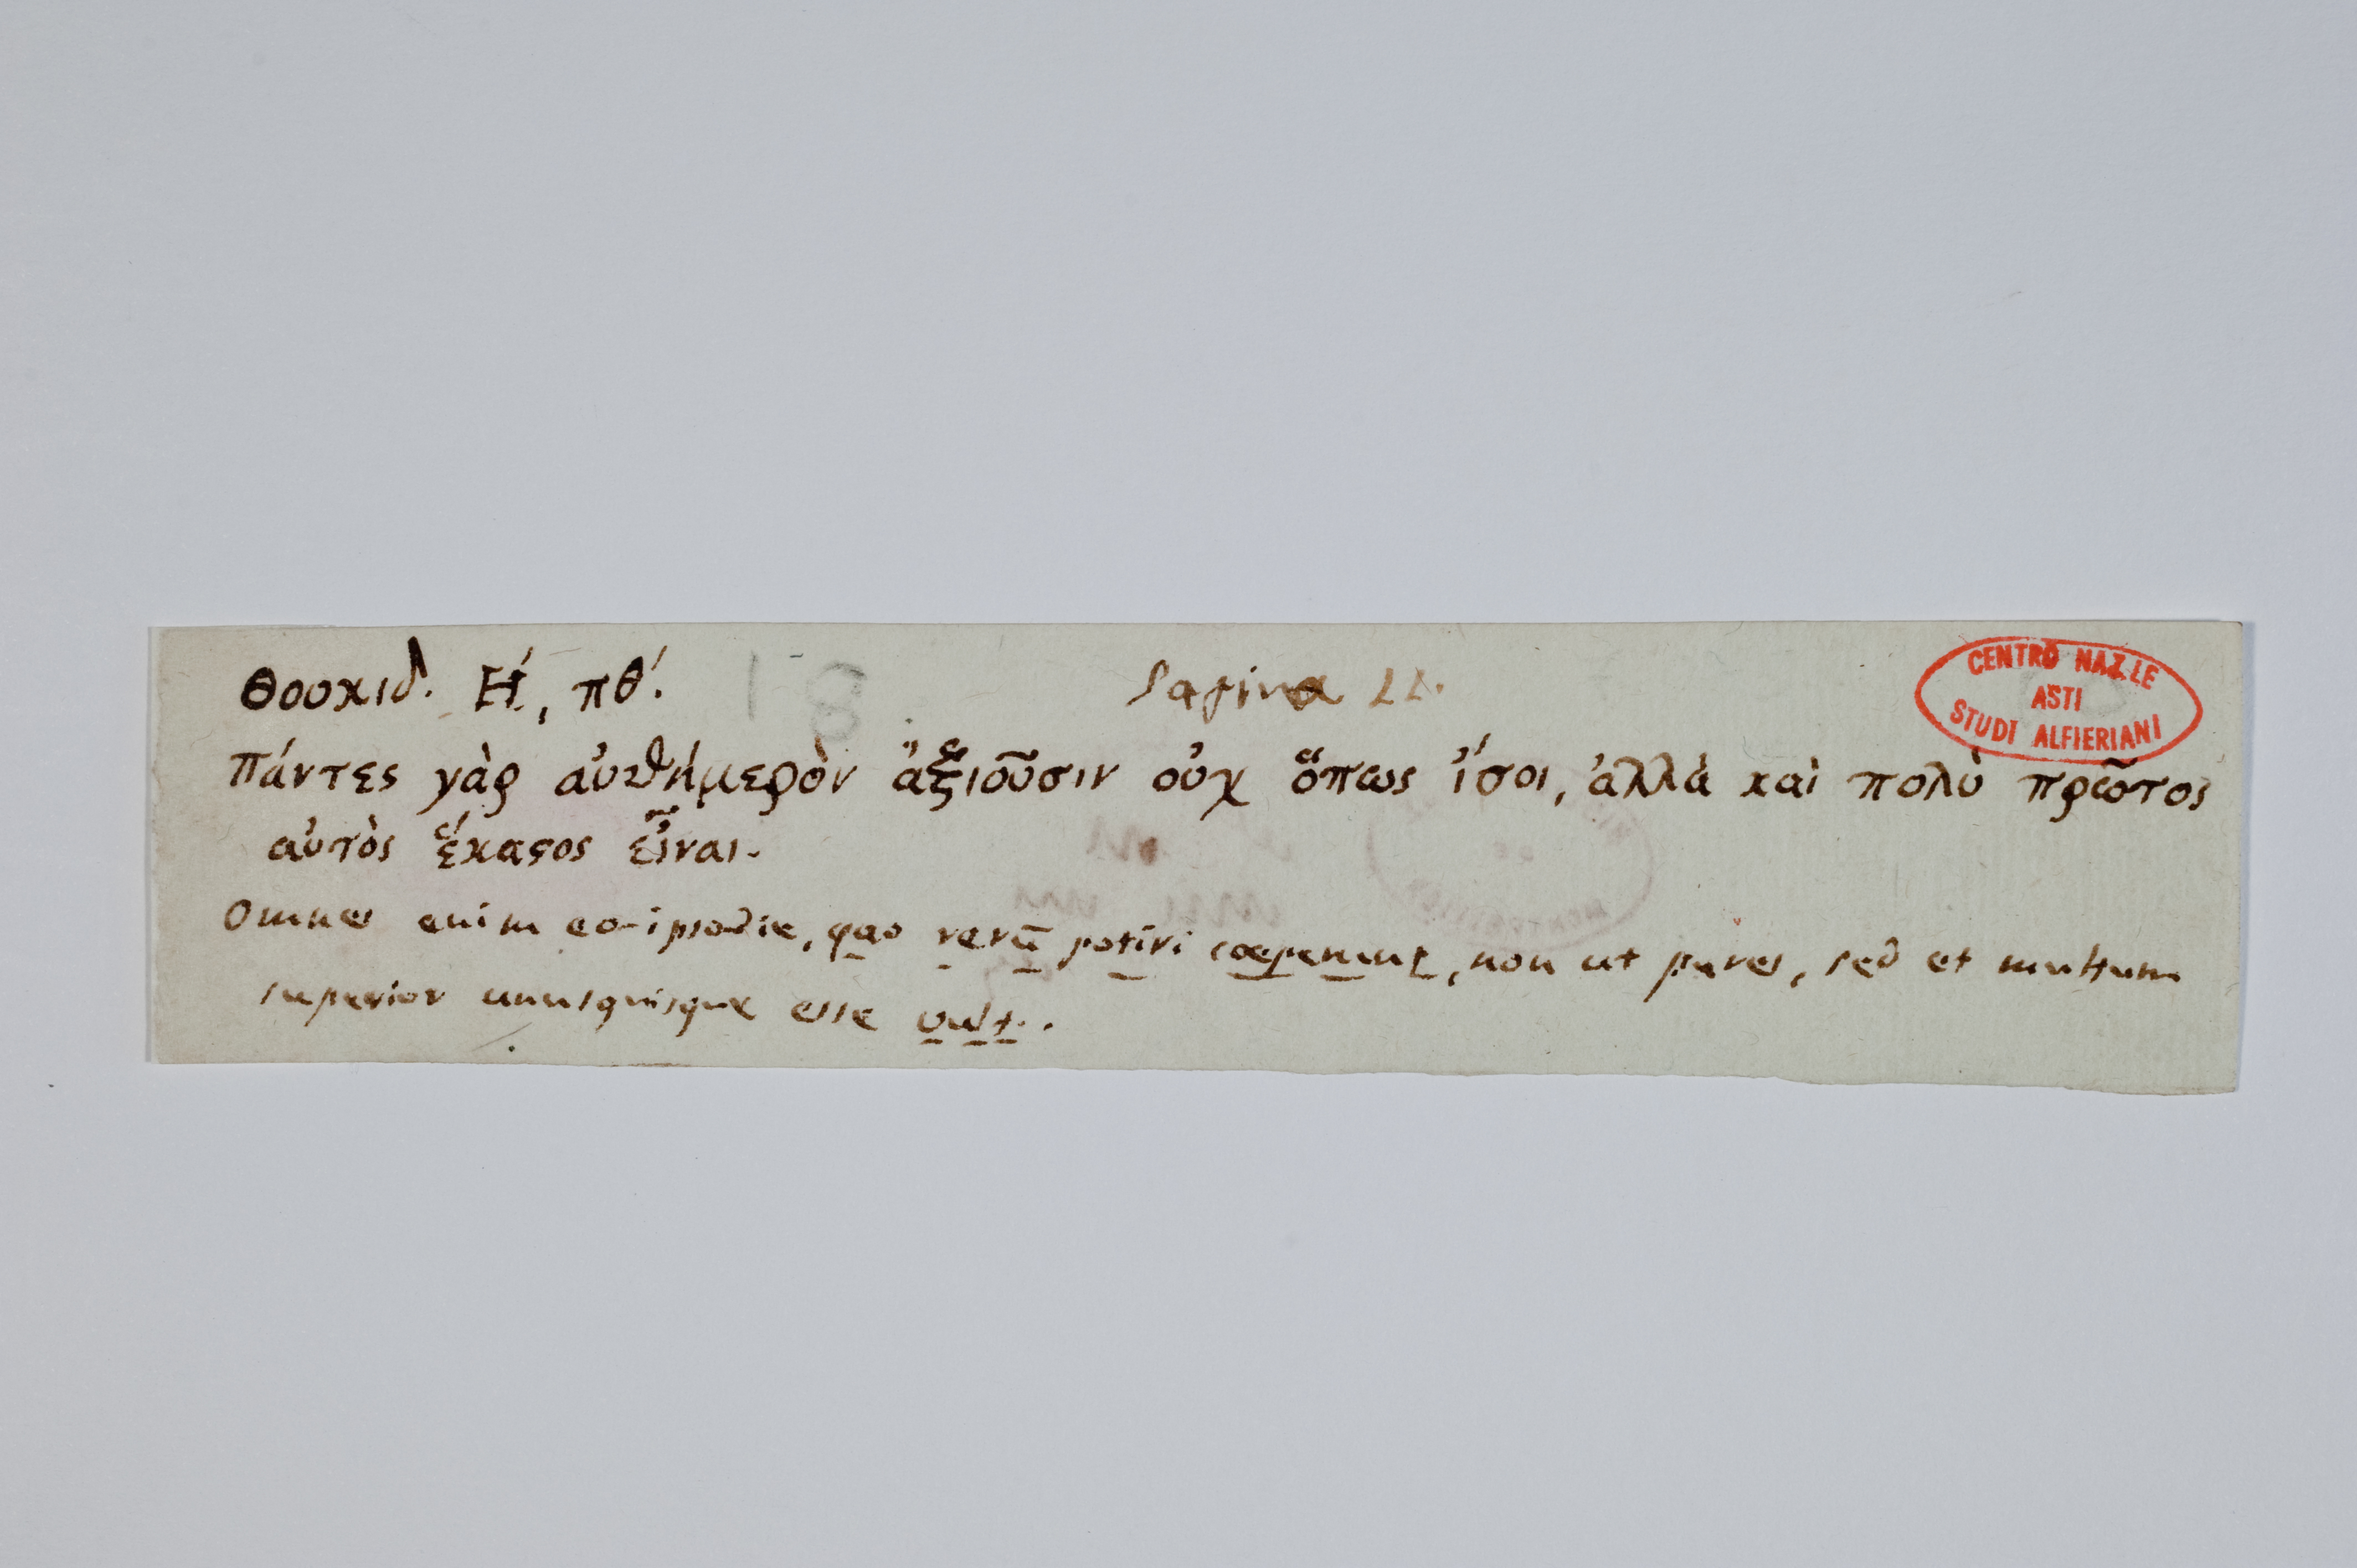 Θουκιδ. Η´, πθ´.
Pagina 22.
CENTRO NAZ.LE
ASTI
STUDI ALFIERIANI
Πάντες γὰρ αὐθήμερὸν ἀξιοῦσιν οὐχ ὅπως ἴσοι, ἀλλὰ καὶ πολὺ πρῶτος
αὐτὸς ἕκαϛος εἶναι.
Omnes enim eo-ipso-die, quo rerū potiri coeperunt, non ut pares, sed et multum
superior unusquisque esse vult.